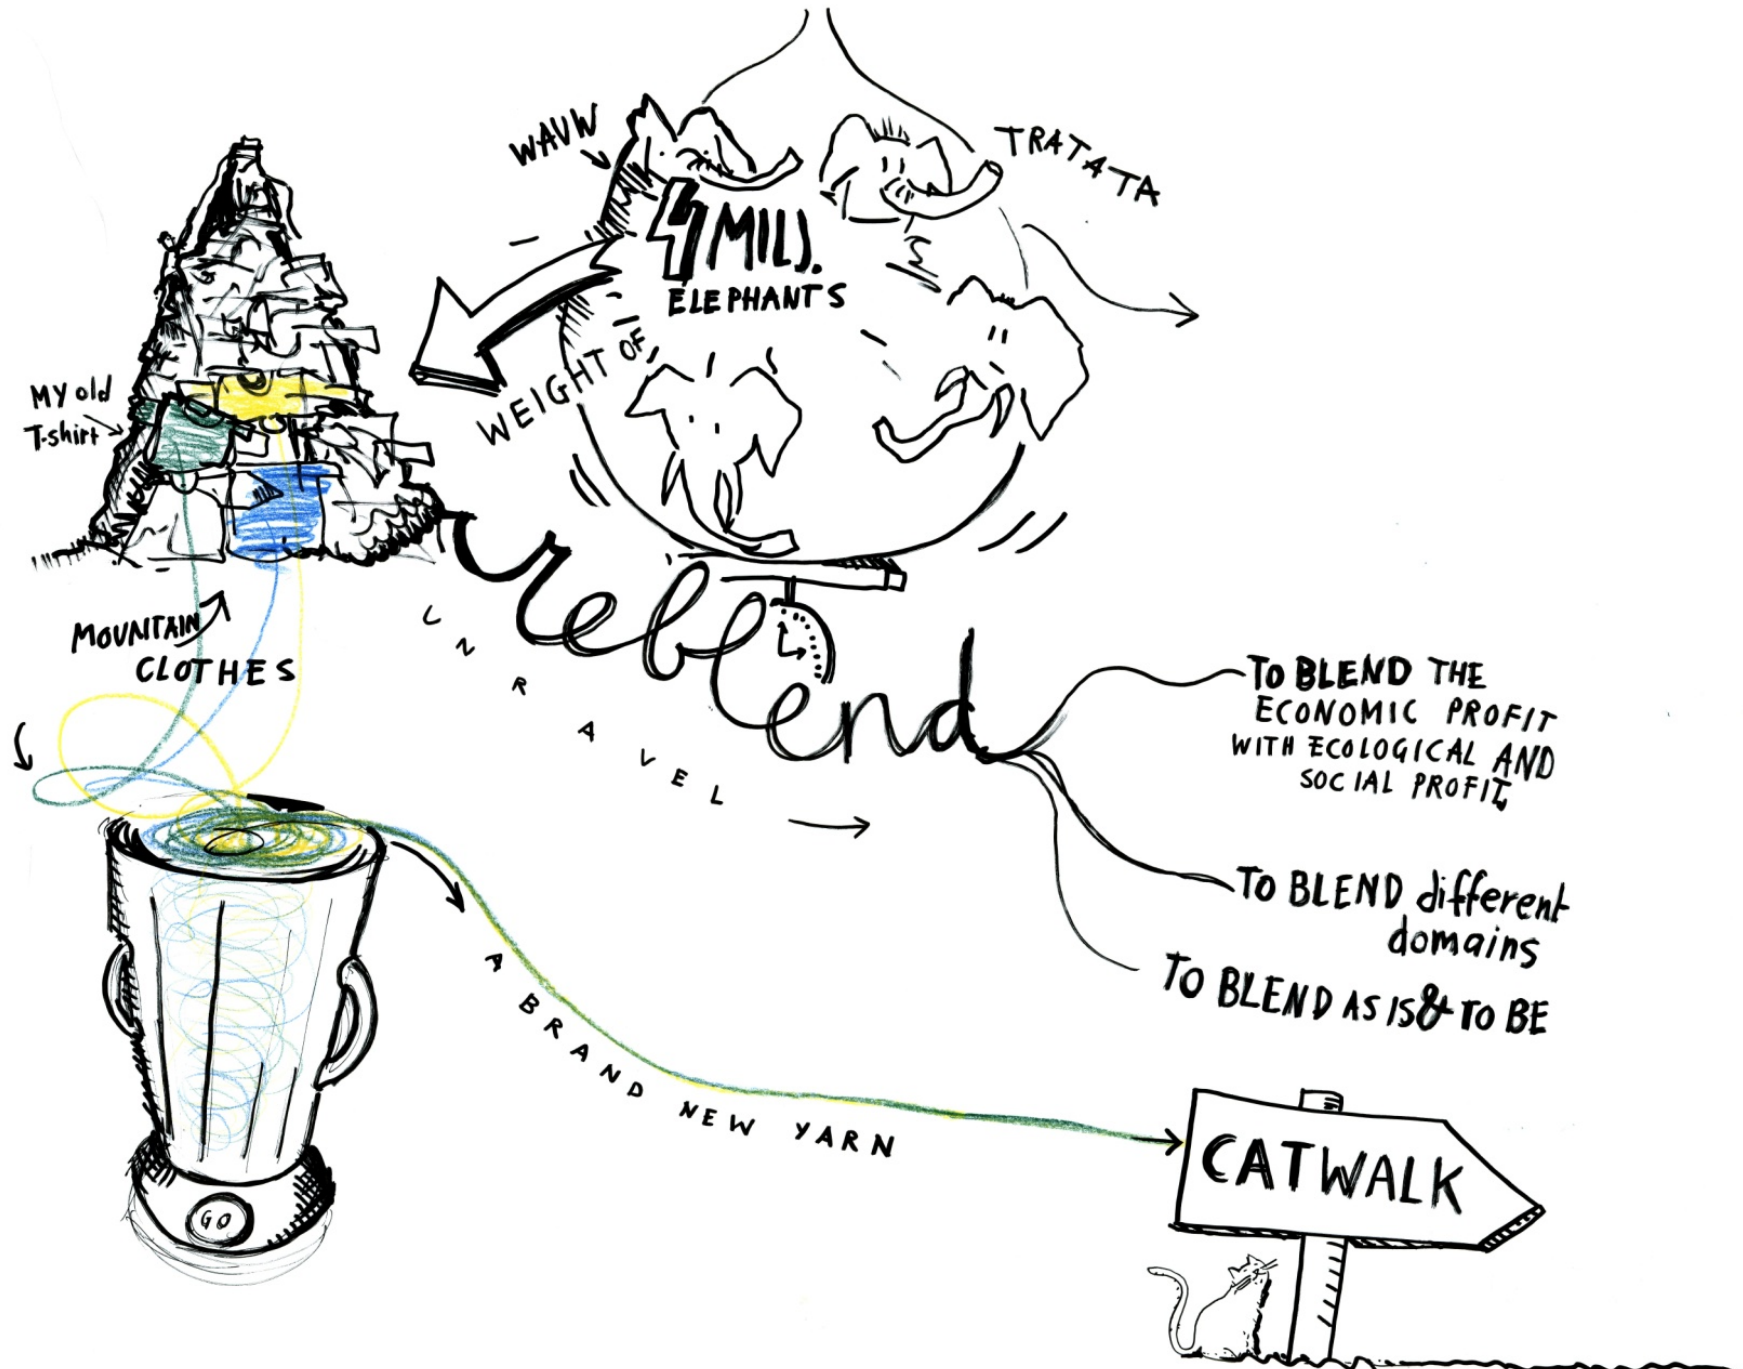 WAUW
TRATATA
4 MILJ.
ELEPHANTS
WEIGHT OF
MY old
T-shirt
MOUNTAIN
CLOTHES
reblend
UNRAVEL
TO BLEND THE
ECONOMIC PROFIT
WITH ECOLOGICAL AND
SOCIAL PROFIT,
TO BLEND different
domains
TO BLEND AS IS & TO BE
A BRAND NEW YARN
CATWALK
GO